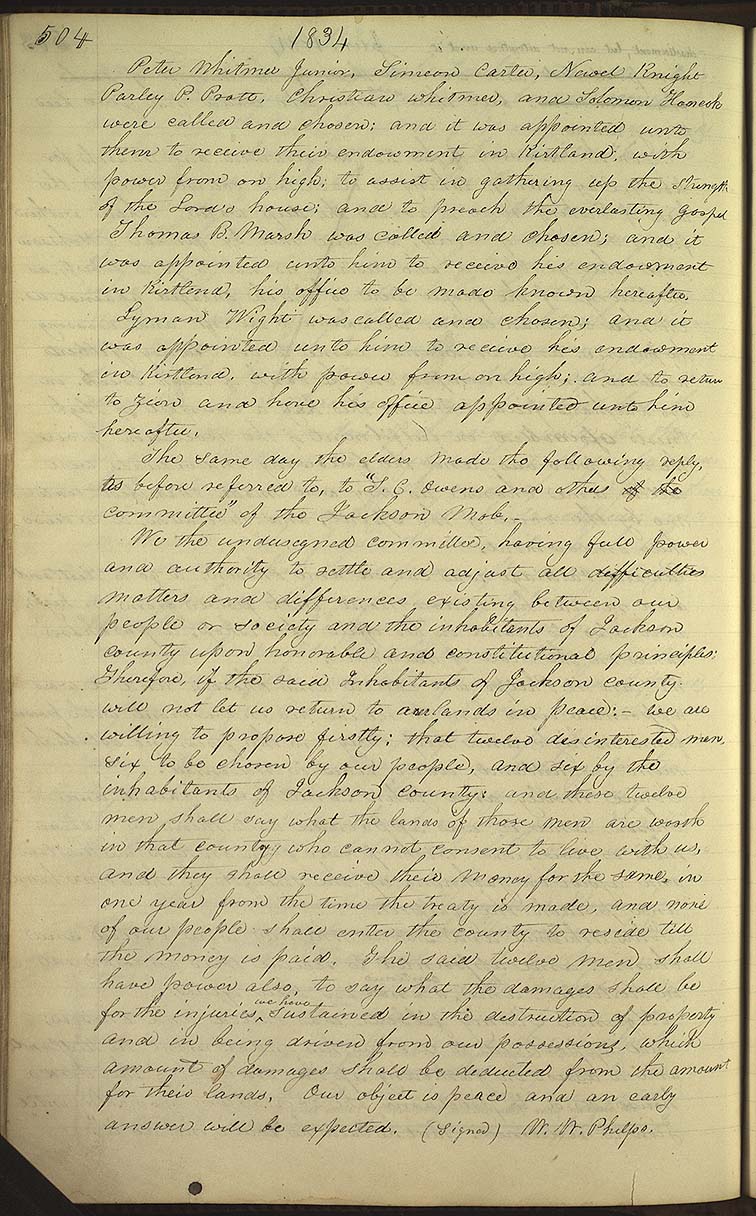 504 1834
Peter Whitmer Junior, Simeon Carter, Newel Knight
Parley P. Pratt, Christian Whitmer, and Solomon Hancock
were called and chosen; and it was appointed unto
them to receive their endowment in Kirtland, with
power from on high; to assist in gathering up the strength
of the Lord's house; and to preach the everlasting gospel
Thomas B. Marsh was called and chosen; and it
was appointed unto him to receive his endowment
in Kirtland, his office to be made known hereafter.
Lyman Wight was called and chosen; and it
was appointed unto him to receive his endowment
in Kirtland, with power from on high; and to return
to Zion and have his office appointed unto him
hereafter.
The same day the elders made the following reply,
as before referred to, to "S. C. Owens and others of the
committee" of the Jackson Mob,—
We the undersigned committee, having full power
and authority to settle and adjust all difficulties
matters and differences existing between our
people or society and the inhabitants of Jackson
county upon honorable and constitutional principles;
Therefore, if the said Inhabitants of Jackson county
will not let us return to our lands in peace:— we are
willing to propose firstly; that twelve disinterested men,
six to be chosen by our people, and six by the
inhabitants of Jackson county; and these twelve
men shall say what the lands of those men are worth
in that county who cannot consent to live with us,
and they shall receive their money for the same, in
one year from the time the treaty is made, and none
of our people shall enter the county to reside till
the money is paid. The said twelve men shall
have power also, to say what the damages shall be
for the injuries we have sustained in the destruction of property
and in being driven from our possessions, which
amount of damages shall be deducted from the amount
for their lands. Our object is peace and an early
answer will be expected. (signed) W. W. Phelps.